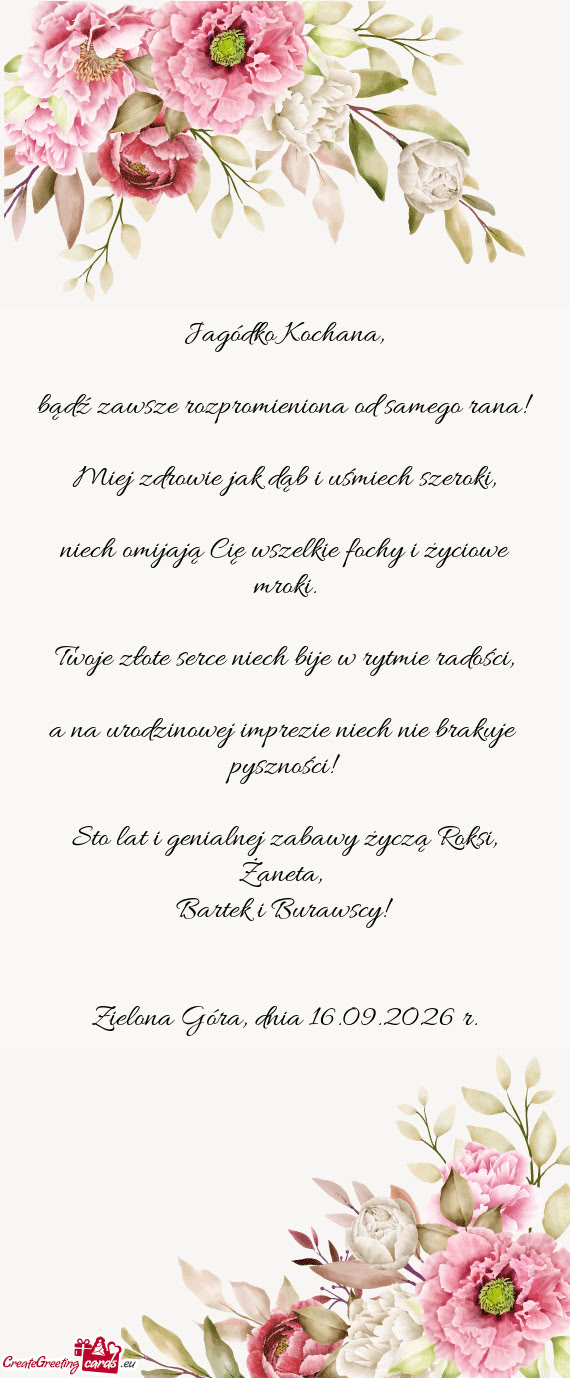 Jagódko Kochana,
bądź zawsze rozpromieniona od samego rana!
Miej zdrowie jak dąb i uśmiech szeroki,
niech omijają Cię wszelkie fochy i życiowe
mroki.
Twoje złote serce niech bije w rytmie radości,
a na urodzinowej imprezie niech nie brakuje
pyszności!
Sto lat i genialnej zabawy życzą Roksi,
Żaneta,
Bartek i Burawscy!
Zielona Góra, dnia 16.09.2026 r.
CreateGreeting cards .eu